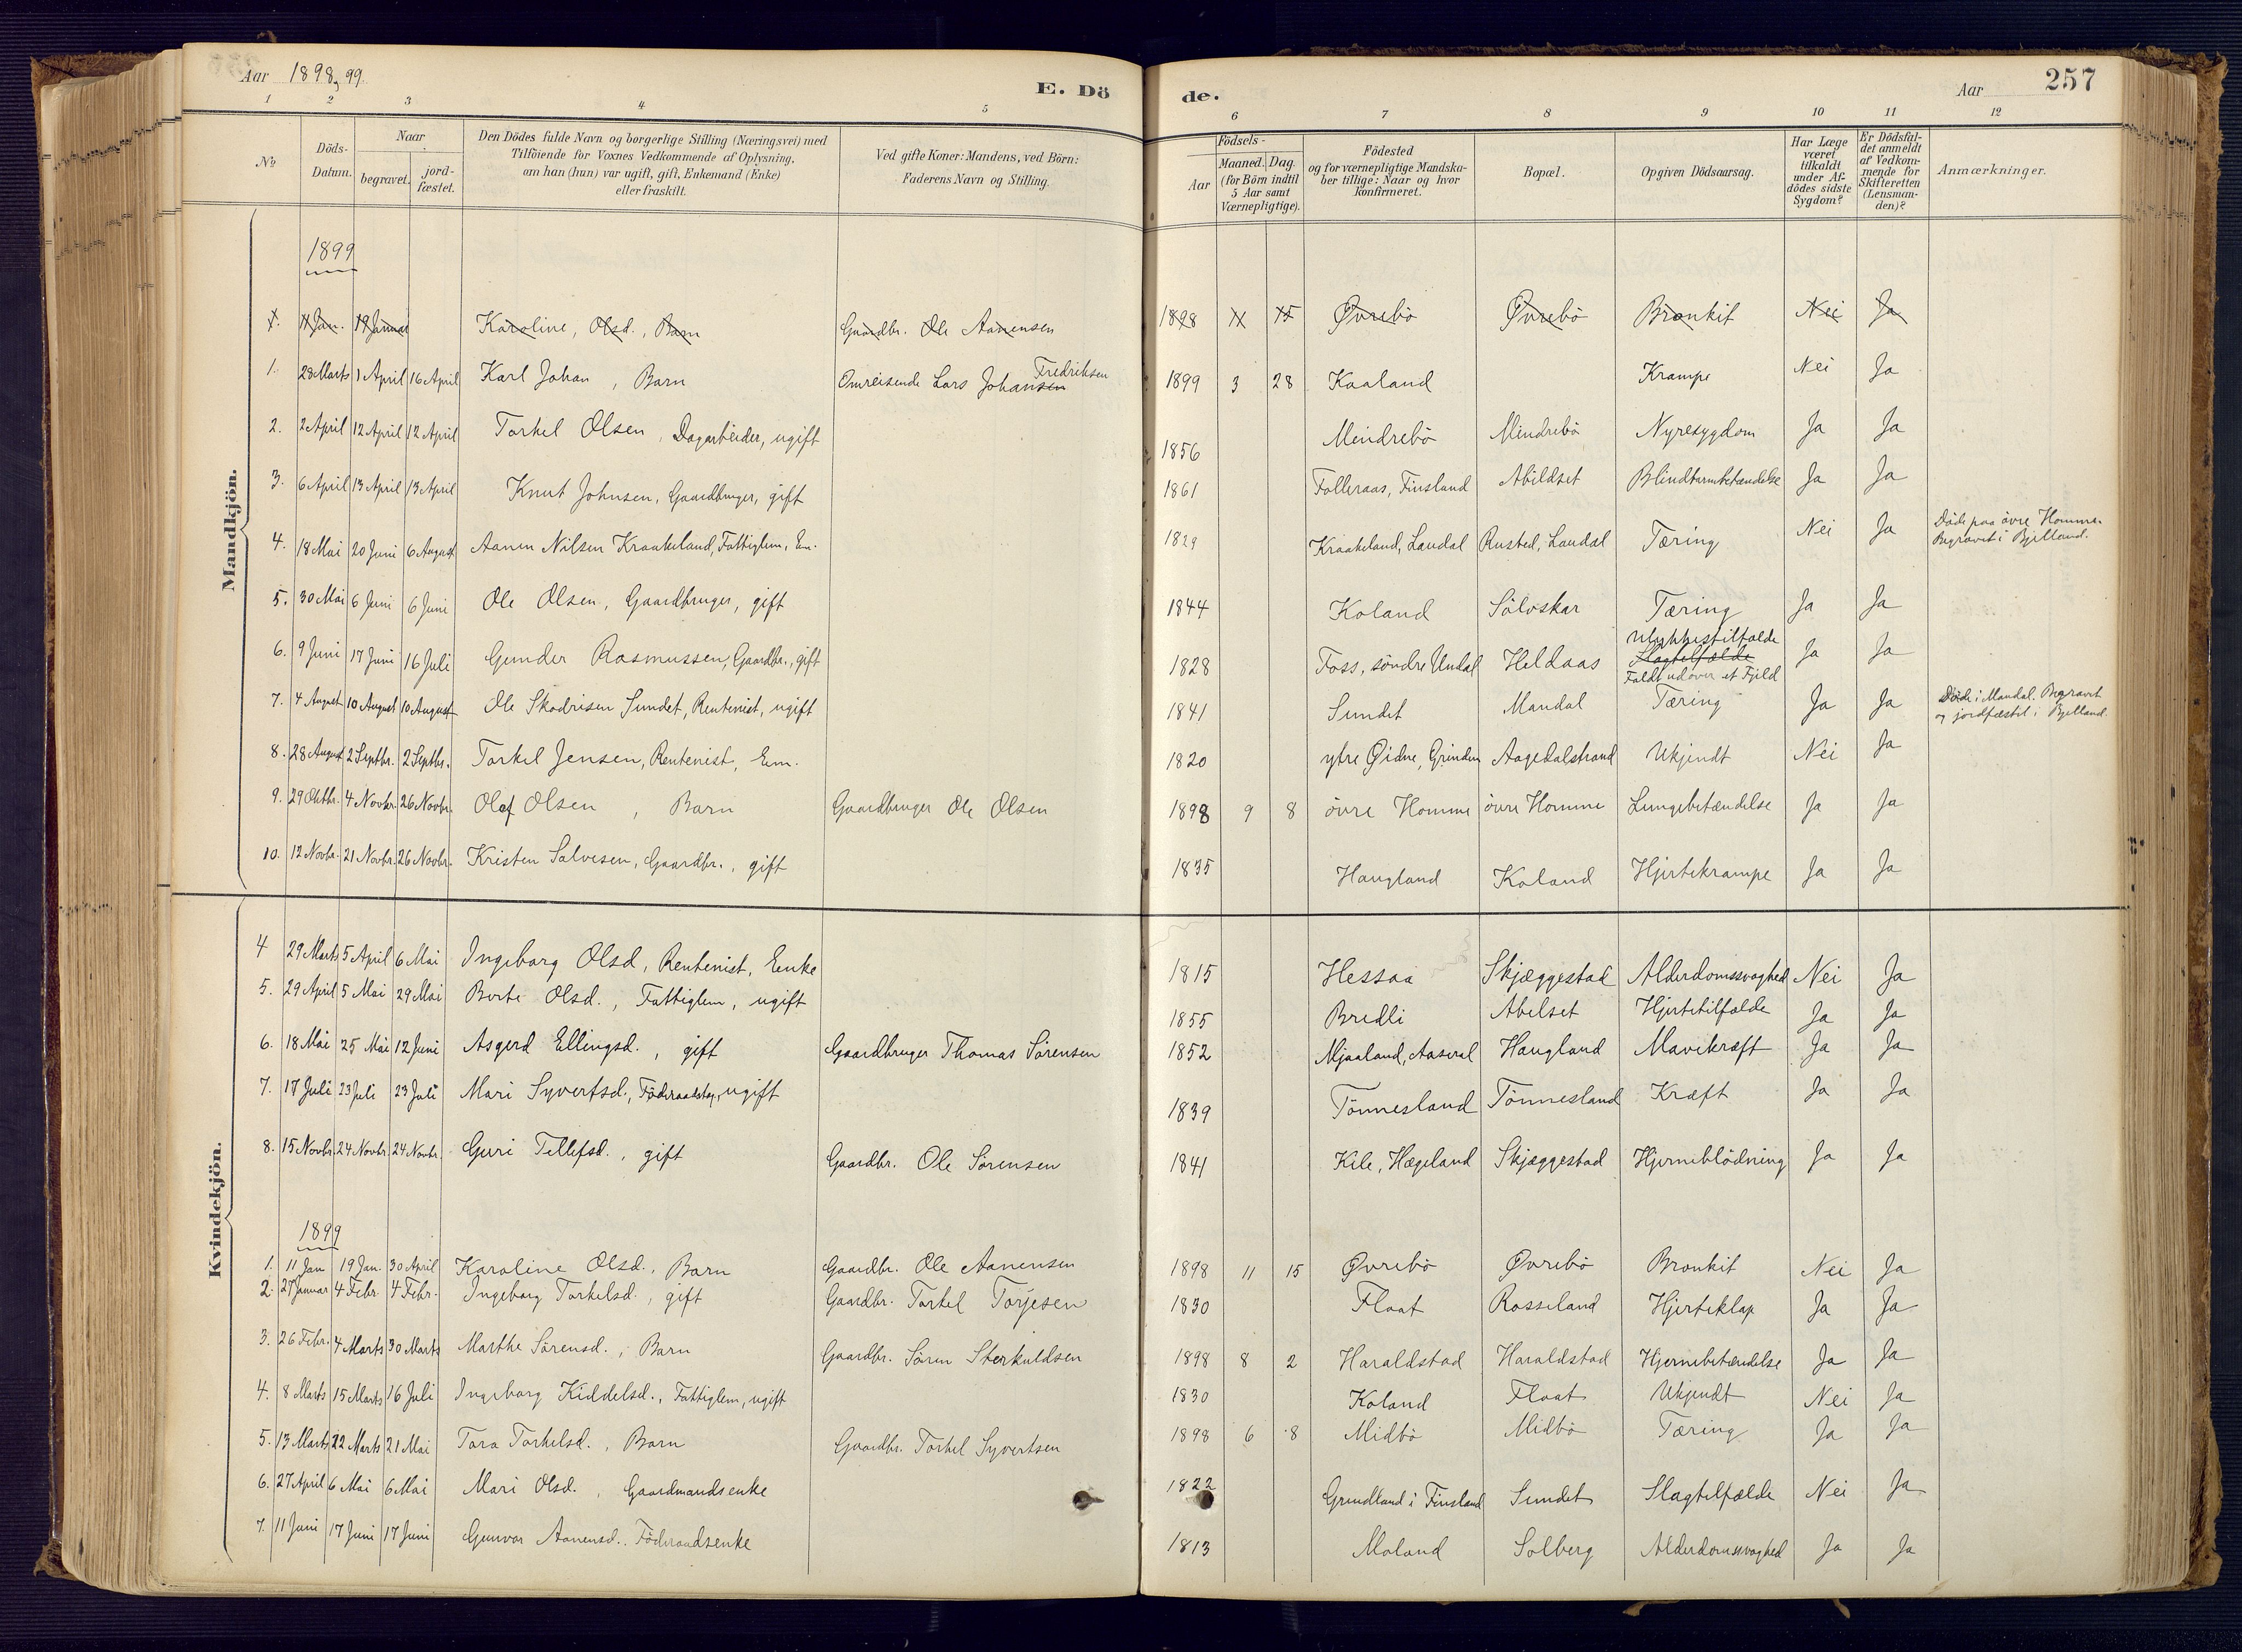 Aar 1898, 99.
E. Döde.
Aar
257
1 2 3 4 5 6 7 8 9 10 11 12
No.
Döds-Datum.
Naar
begravet. jord-fæstet.
Den Dödes fulde Navn og borgerlige Stilling (Næringsvei) med
Tilföiende for Voxnes Vedkommende af Oplysning,
om han (hun) var ugift, gift, Enkemand (Enke)
eller fraskilt.
Ved gifte Koner: Mandens, ved Börn:
Faderens Navn og Stilling.
Födsels-
Aar Maaned. Dag.
(for Börn indtil
5 Aar samt
Værnepligtige).
Födested
og for værnepligtige Mandska-
ber tillige: Naar og hvor
konfirmeret.
Bopæl.
Opgiven Dödsaarsag.
Har Læge
været
tilkaldt
under Af-
dödes sidste
Sygdom?
Er Dödsfal-
det anmeldt
af Vedkom-
mende for
Skifteretten
(Lensman-
den)?
Anmærkninger.
Mandkjön.
1899
1. 11 Jan. 19 Januar Karoline, Olsd., Barn Gaardbr. Ole Aanensen 1898 11 15 Øvrebö Øvrebö Bronkit Nei Ja
1. 28 Marts 1 April 16 April Karl Johan, Barn Omreisende Lars Johansen Fredriksen 1899 3 28 Kaaland Krampe Nei Ja
2. 2 April 12 April 12 April Torkel Olsen, Dagarbeider, ugift 1856 Mindrebö Mindrebö Nyresygdom Ja Ja
3. 6 April 13 April 13 April Knut Johnsen, Gaardbruger, gift 1861 Folleraas, Finsland Abildset Blindtarmbetændelse Ja Ja
4. 18 Mai 20 Juni 6 August Aanen Nilsen Kraakeland, Fattiglem, Em. 1829 Kraakeland, Laudal Rusted, Laudal Tæring Nei Ja Döde paa övre Homme. Begravet i Bjelland.
5. 30 Mai 6 Juni 6 Juni Ole Olsen, Gaardbruger, gift 1844 Koland Sölvskar Tæring Ja Ja
6. 9 Juni 17 Juni 16 Juli Gunder Rasmussen, Gaardbr., gift 1828 Foss, söndre Undal Heldaas Ulykkestilfælde Slagtilfælde Faldt udover et Fjeld Ja Ja
7. 4 August 10 August 10 August Ole Skodrisen Sundet, Rentenist, ugift 1841 Sundet Mandal Tæring Ja Ja Döde i Mandal. Begravet og jordfæstet i Bjelland.
8. 28 August 2 Septbr. 2 Septbr. Torkel Jensen, Rentenist, Em. 1820 ytre Øidne, Grindum Aagedalstrand Ukjendt Nei Ja
9. 29 Oktbr. 4 Novbr. 26 Novbr. Olaf Olsen, Barn Gaardbruger Ole Olsen 1898 9 8 övre Homme övre Homme Lungebetændelse Ja Ja
10. 12 Novbr. 21 Novbr. 26 Novbr. Kristen Salvesen, Gaardbr., gift 1835 Haugland Koland Hjertekrampe Ja Ja
Kvindekjön.
4 29 Marts 5 April 6 Mai Ingeborg Olsd, Rentenist, Enke 1815 Hessaa Skjæggestad Alderdomssvaghed Nei Ja
5. 29 April 5 Mai 29 Mai Berte Olsd., Fattiglem, ugift 1855 Bredli Abelset Hjertetilfælde Ja Ja
6. 18 Mai 25 Mai 12 Juni Asgerd Ellingsd., gift Gaardbruger Thomas Sörensen 1852 Mjaaland, Aaseral Haugland Mavekræft Ja Ja
7. 17 Juli 23 Juli 23 Juli Mari Syvertsd., ugift 1839 Tönnesland Tönnesland Kræft Ja Ja
8. 15 Novbr. 24 Novbr. 24 Novbr. Guri Tellefsd., gift Gaardbr. Ole Sörensen 1841 Kile, Hægeland Skjæggestad Hjerneblödning Ja Ja
1899
1. 11 Jan 19 Jan. 30 April Karoline Olsd., Barn Gaardbr. Ole Aanensen 1898 11 15 Øvrebö Øvrebö Bronkit Nei Ja
2. 27 Januar 4 Febr. 4 Febr. Ingeborg Torkelsd., gift Gaardbr. Torkel Torjesen 1830 Flaat Rosseland Hjerteklap Ja Ja
3. 26 Febr. 4 Marts 30 Marts Marthe Sörensd., Barn Gaardbr. Sören Sterkuldsen 1898 8 2 Haraldstad Haraldstad Hjernebetændelse Ja Ja
4. 8 Marts 15 Marts 16 Juli Ingeborg Kiddelsd., Fattiglem, ugift 1830 Koland Flaat Ukjendt Nei Ja
5. 13 Marts 22 Marts 21 Mai Tora Torkelsd., Barn Gaardbr. Torkel Syvertsen 1898 6 8 Midbö Midbö Tæring Ja Ja
6. 27 April 6 Mai 6 Mai Mari Olsd., Gaardmandsenke 1822 Grundland i Finsland Sundet Slagtilfælde Nei Ja
7. 11 Juni 17 Juni 17 Juni Gunvor Aanensd.. Föderaadsenke 1813 Moland Solberg Alderdomssvaghed Ja Ja